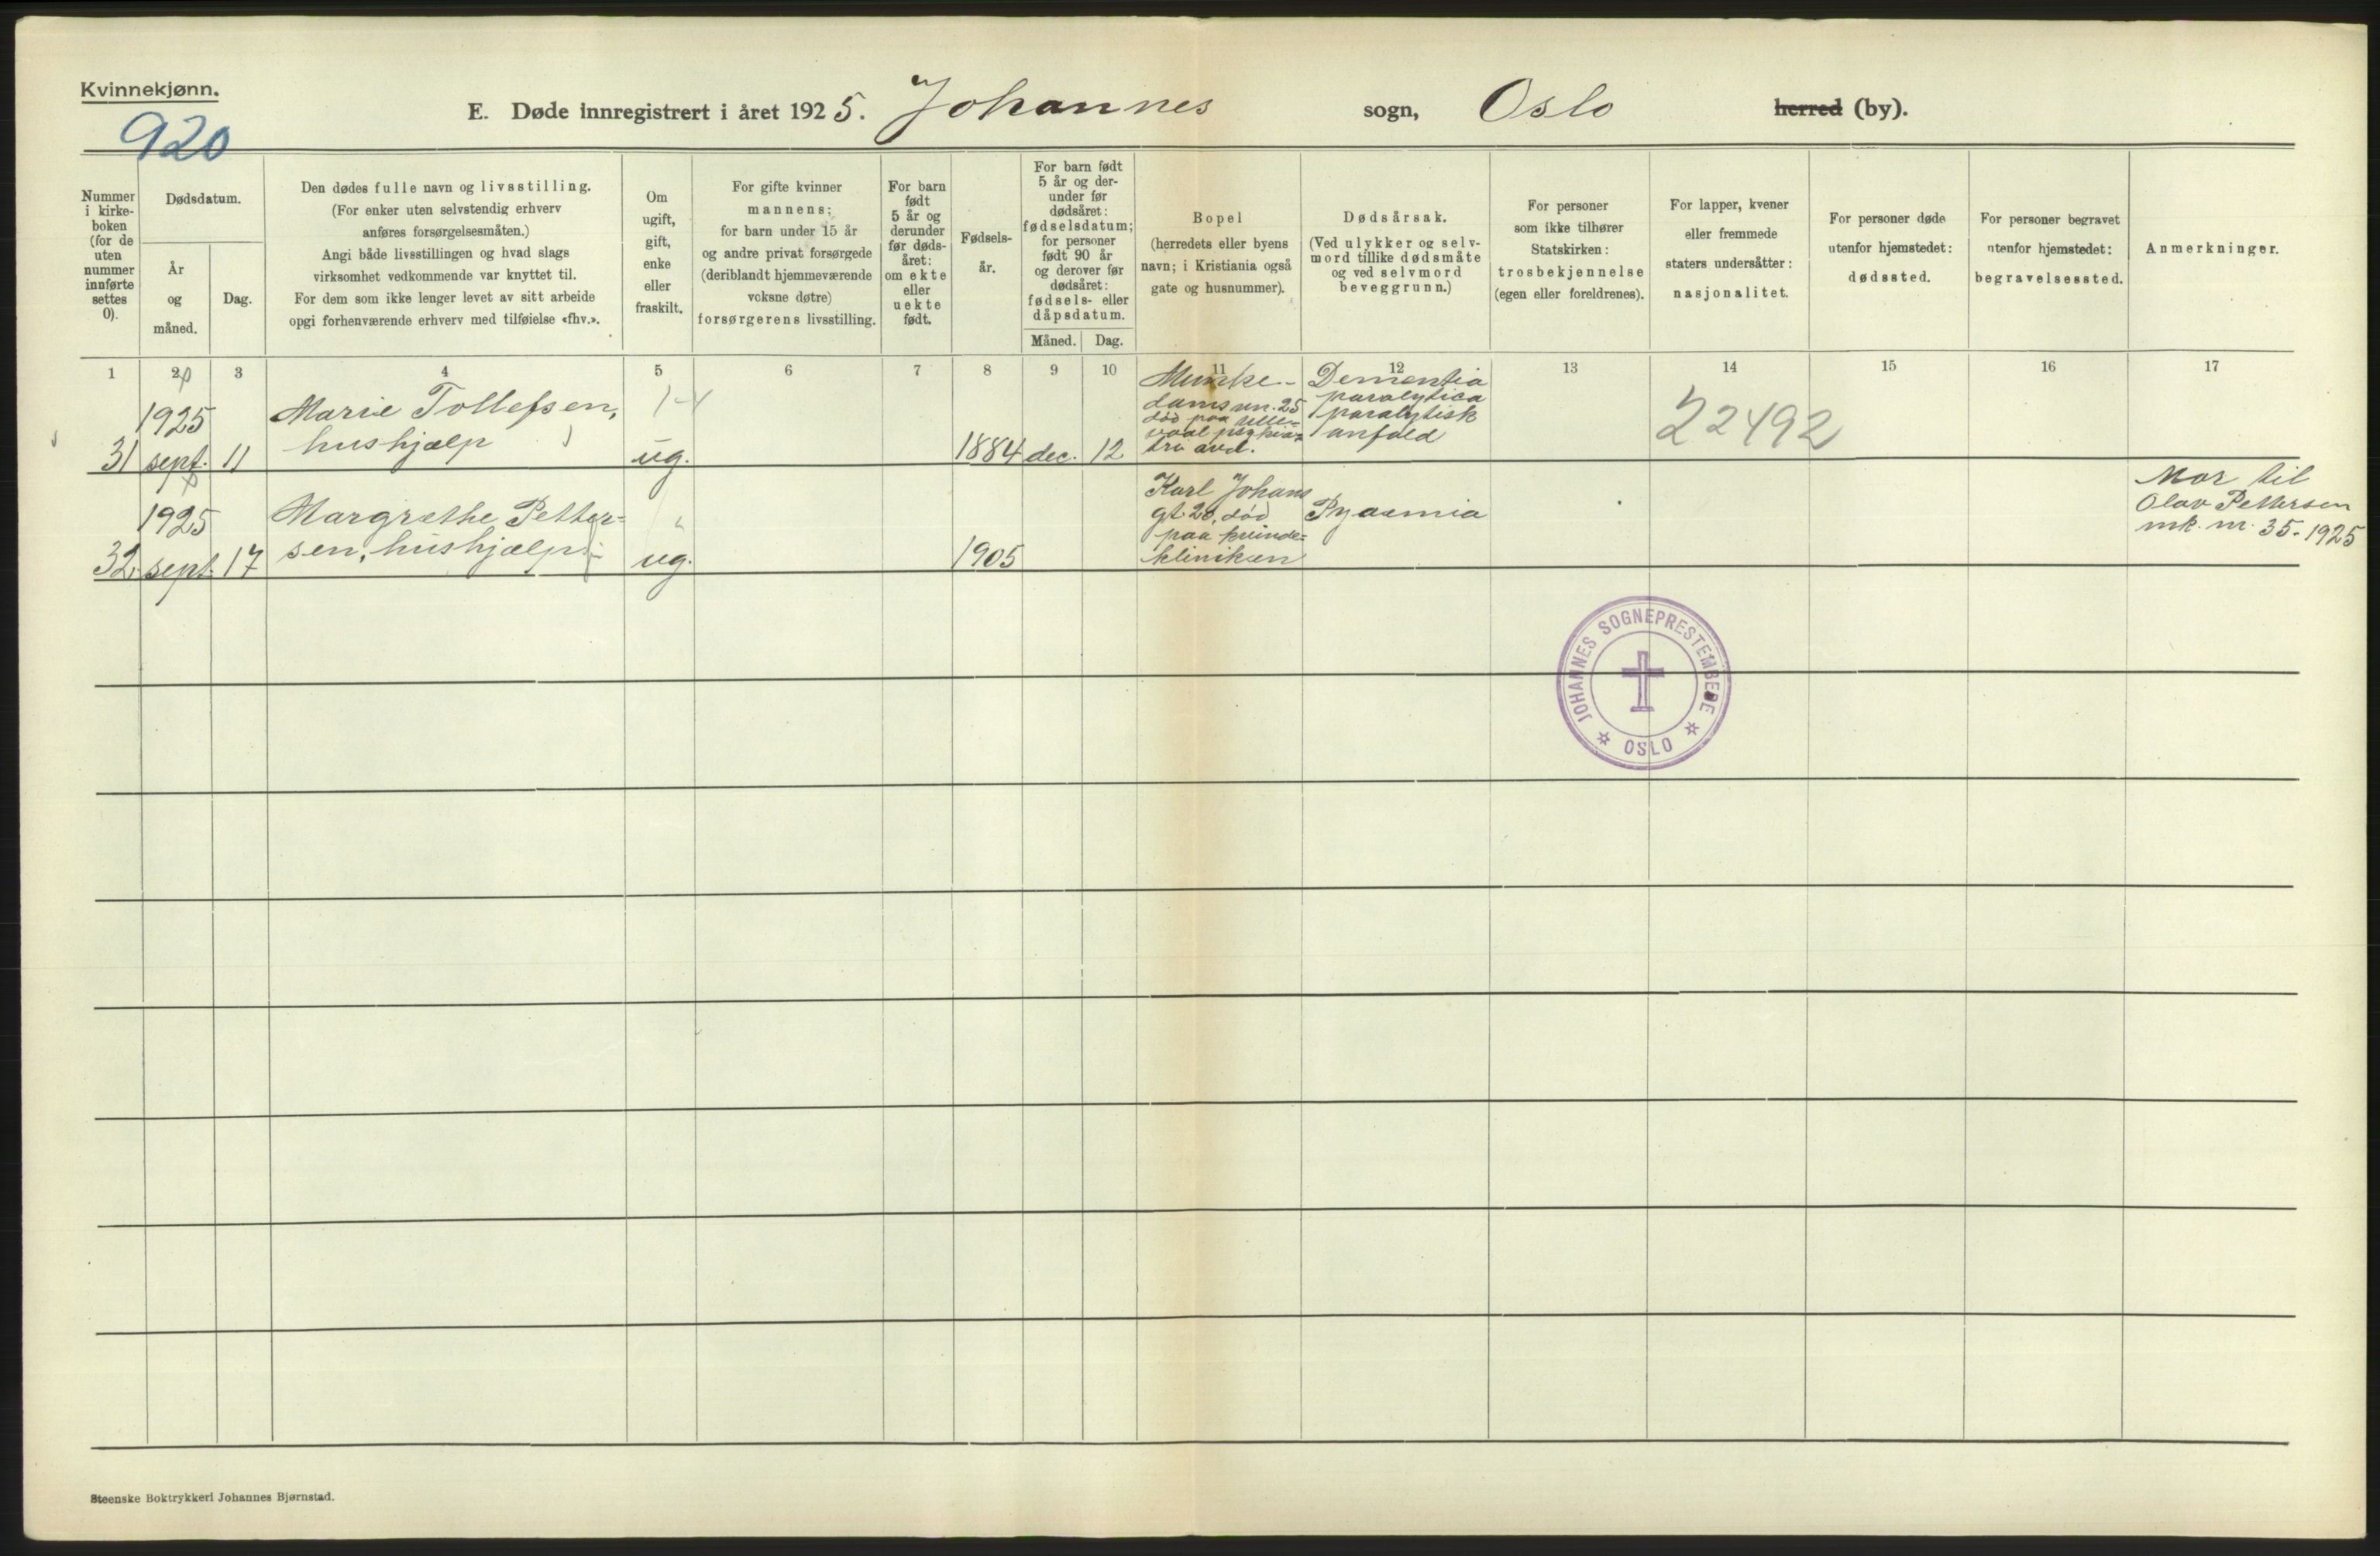 Kvinnekjønn.
920
E. Døde innregistrert i året 1925. Johannes sogn, Oslo herred (by).
Nummer
i kirke-
boken
(for de
uten
nummer
innførte
settes
0).
Dødsdatum.
År
og
måned.
Dag.
Den dødes fulle navn og livsstilling.
(For enker uten selvstendig erhverv
anføres forsørgelsesmåten.)
Angi både livsstillingen og hvad slags
virksomhet vedkommende var knyttet til.
For dem som ikke lenger levet av sitt arbeide
opgi forhenværende erhverv med tilføielse «fhv.».
Om
ugift,
gift,
enke
eller
fraskilt.
For gifte kvinner
mannens;
for barn under 15 år
og andre privat forsørgede
(deriblandt hjemmeværende
voksne døtre)
forsørgerens livsstilling.
For barn
født
5 år og
derunder
før døds-
året:
om ekte
eller
uekte
født.
Fødsels-
år.
For barn født
5 år og der-
under før
dødsåret:
fødselsdatum;
for personer
født 90 år
og derover før
dødsåret:
fødsels- eller
dåpsdatum.
Måned.
Dag.
Bopel
(herredets eller byens
navn; i Kristiania også
gate og husnummer).
Dødsårsak.
(Ved ulykker og selv-
mord tillike dødsmåte
og ved selvmord
beveggrunn.)
For personer
som ikke tilhører
Statskirken:
trosbekjennelse
(egen eller foreldrenes).
For lapper, kvener
eller fremmede
staters undersåtter:
nasjonalitet.
For personer døde
utenfor hjemstedet:
dødssted.
For personer begravet
utenfor hjemstedet:
begravelsessted.
Anmerkninger.
1 2 3 4 5 6 7 8 9 10 11 12 13 14 15 16 17
31
1925
sept.
11
Marie Tollefsen,
hushjælp
ug.
1884
dec.
12
Munke-
damsvn. 25
død paa Ulle-
vaal psykia-
tri avd.
Dementia
paralytica
paralytisk
anfald
22492
32.
1925
sept.
17
Margrethe Petter-
sen, hushjælp
ug.
1905
Karl Johans
gt. 20, død
paa kvinde-
kliniken
Pyaemia
Mor til
Olav Pettersen
mk. nr. 35-1925
JOHANNES SOGNEPRESTEMBEDE
OSLO
Steenske Boktrykkeri Johannes Bjørnstad.